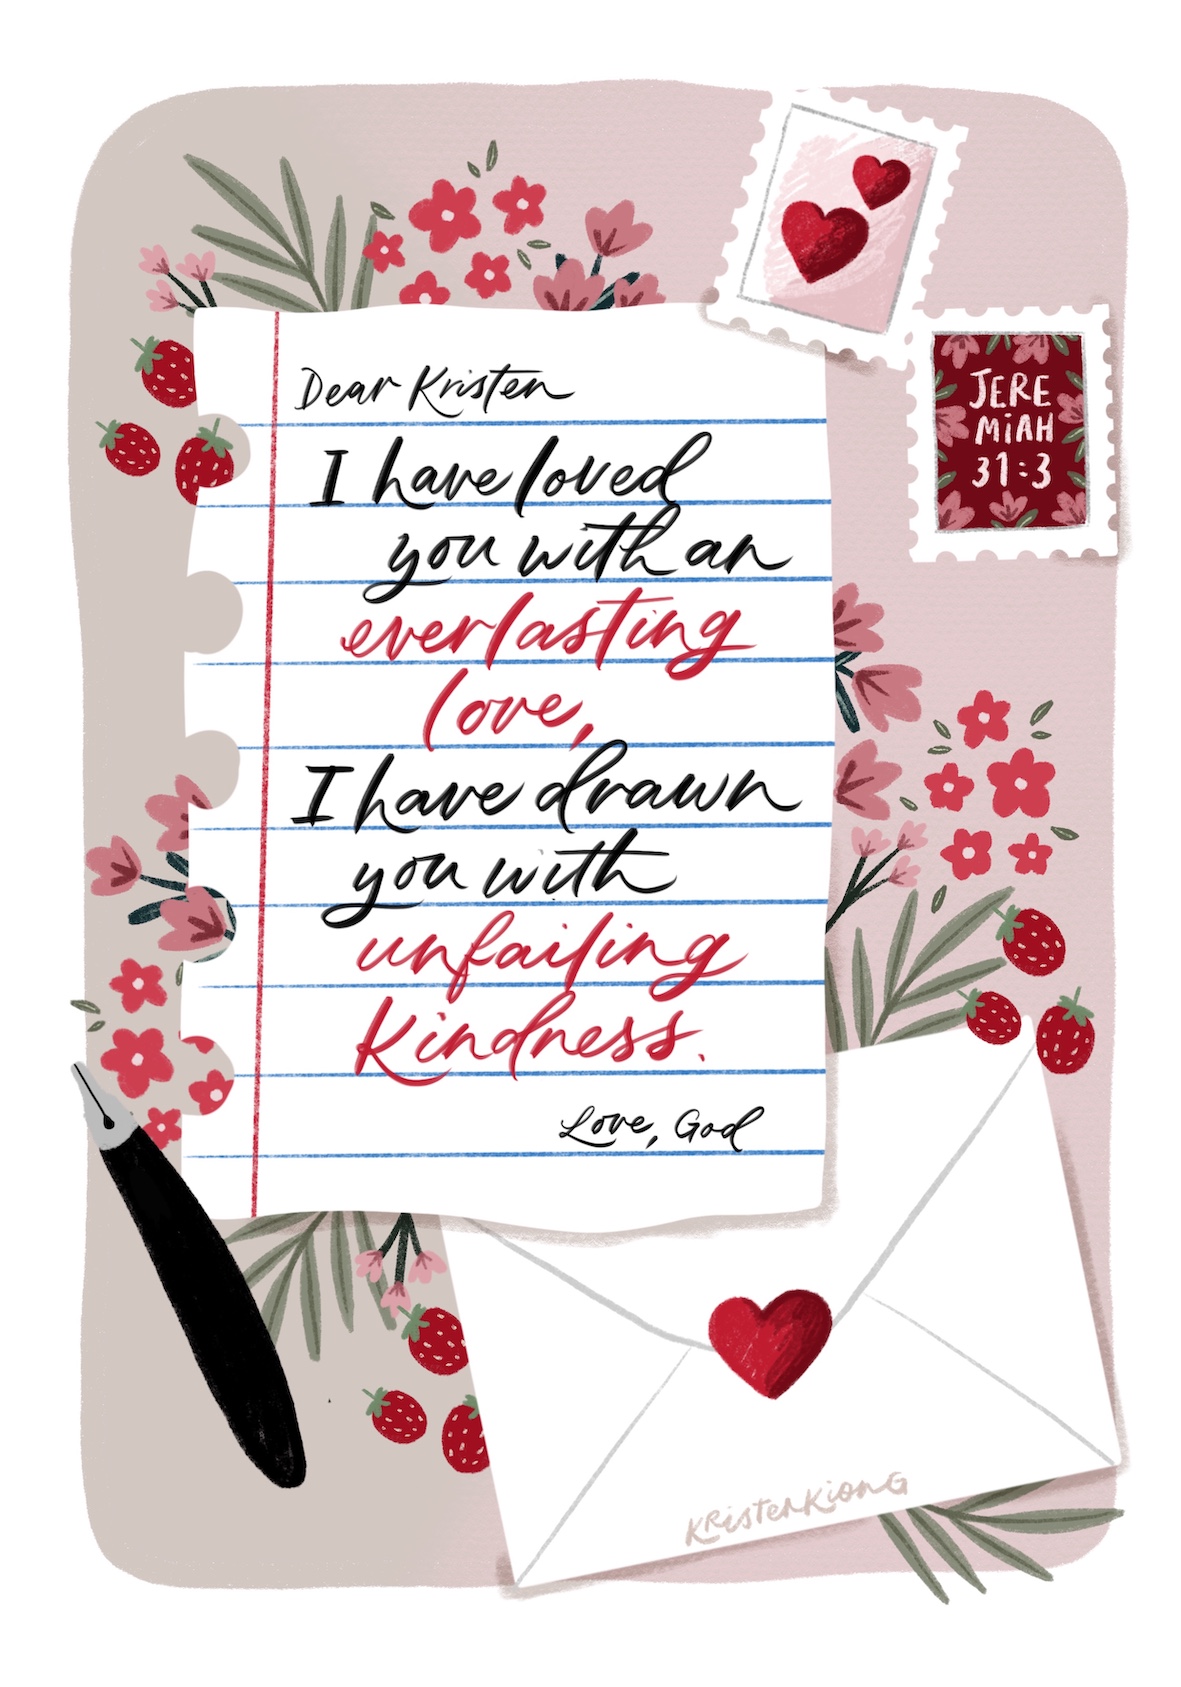 JERE
MiAH
31:3
Dear Kristen
I have loved
you with an
everlasting
love,
I have drawn
you with
unfailing
kindness.
Love, God
KRistenKionG